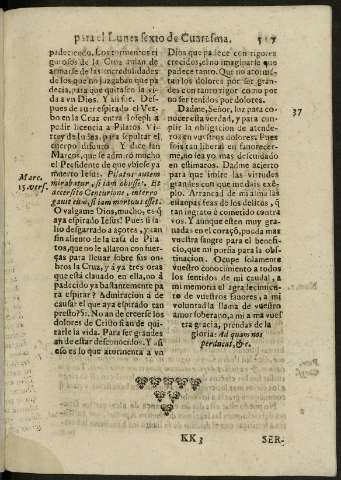 para el Lunes sexto de Cuaresma. 517
padeciendo. Los tormentos ri
gurosos de la Cruz auian de
armarse de las incredulidades
de los que no juzgaban que pa
decia, para que quitasen la vi-
da a vn Dios. Y assi fue. Des
pues de auer espirado el Ver-
bo en la Cruz entra Ioseph a
pedir licencia a Pilatos Vi-
rey de Iudea, para sepultar el
cuerpo difunto, Y dize san
Marcos, que se admirò mucho
el Presidente de que vbiese ya
muerto Iesus. Pilatus autem
mirabatur, si iam obisset. Et
accersito Centurione, interro
gauit eum, si iam mortuus esset.
O valgame Dios, mucho, es q̃
aya espirado Iesus? Pues si sa-
lio desgarrado a açotes, y casi
sin aliento de la casa de Pila
tos, que no le allaron con fuer-
ças para lleuar sobre sus on-
bros la Cruz, y à ya tres oras
que està clauado en ella, no à
padecido ya bastantemente pa
ra espirar? Admiracion à de
causar el que aya espirado tan
presto? Si: No an de creerse los
dolores de Cristo si an de qui-
tarle la vida. Para ser grandes
an de estar desconocidos. Y asi
eso es lo que atormenta a vn
Marc.
15. vers.
Dios que padece con rigores
crecidos, el no imaginarle que
padece tanto. Que no atormẽ
tan los dolores por ser gran-
des con tanto rigor como por
no ser tenidos por dolores.
Dadme, Señor, luz para co-
nocer esta verdad, y para cum-
plir la obligacion de atender-
os en vuestros dolores. Pues
sois tan liberal en fauorecer-
me, no sea yo mas descuidado
en estimaros. Dadme acierto
para que imite las virtudes
grandes con que me dais ex-
eplo. Arrancad de mi alma las
estanpas feas de los delitos, q̃
tan ingrato è cometido contra
vos. Y aunque esten muy gra-
nadas en el coraçõ, pueda mas
vuestra sangre para el benefi-
cio, que mi porfia para la obs-
tinacion. Ocupe solamente
vuestro conocimiento a todos
los sentidos de mi caudal, a
mi memoria el agradecimien-
to de vuestros fauores, a mi
voluntad la llama de vuestro
amor soberano, a mi alma vues
tra gracia, prendas de la
gloria: Ad quam nos
perducat, &c.
37
KK 3 SER-